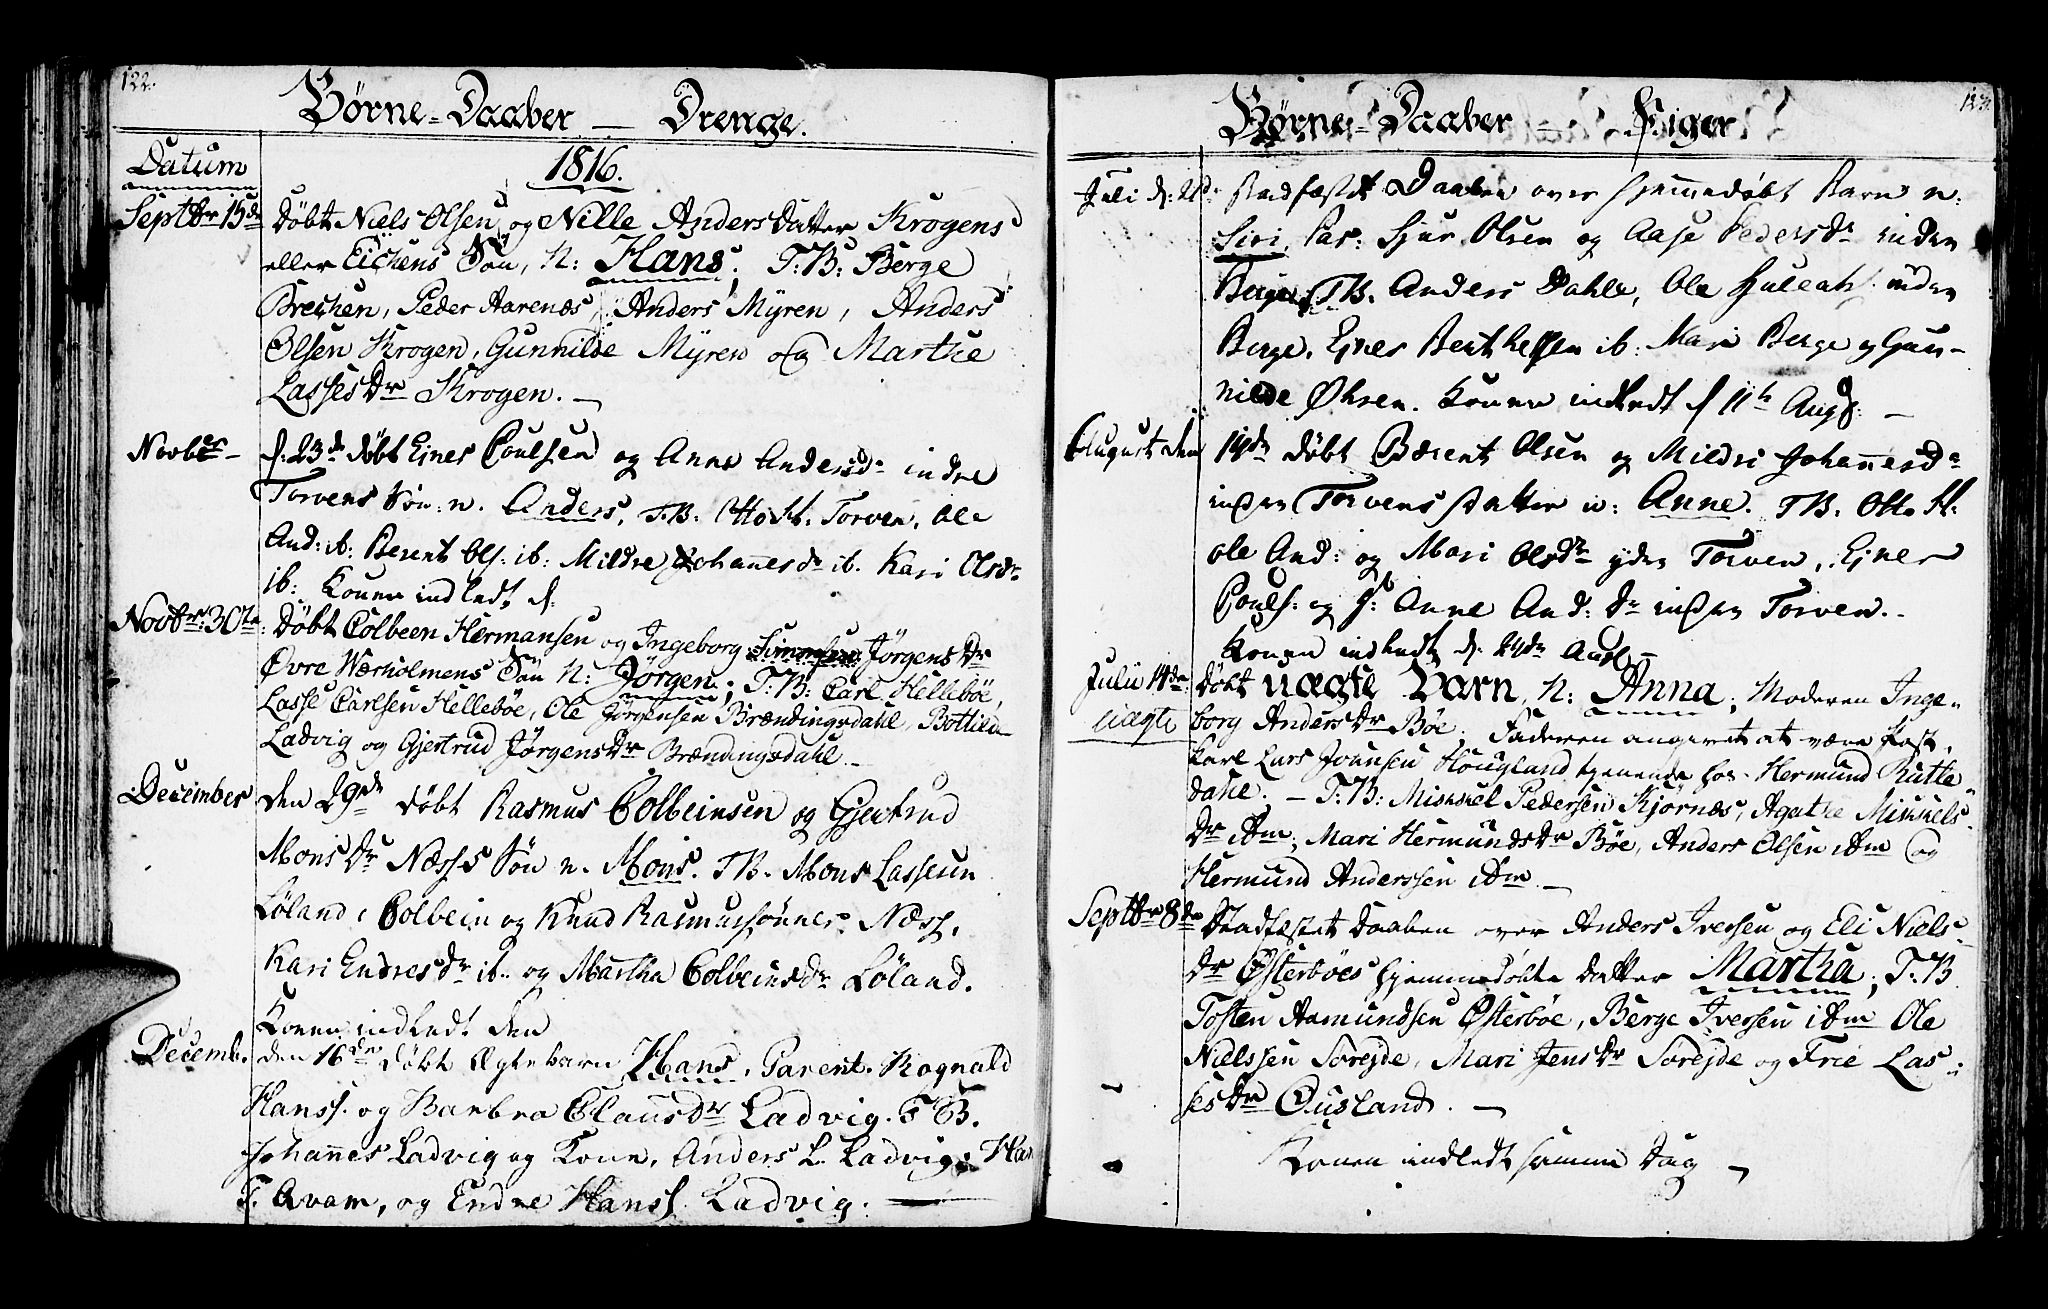 122.
Børne-Daaber — Drenge.
Datum
1816.
Septbr 15de
Døbt Niels Olsen og Nille Anders Datter Krogens
eller Eichens Søn, N: Hans; T:B: Berge
Brechen, Peder Aarenæs, Anders Myren, Anders
Olsen Krogen, Gunnilde Myren og Marthe
Lasses Dr Krogen. —
Novbr —
d: 23de døbt Ejner Poulsen og Anne Andersdr indre
Torvens Søn: n. Anders. T.B. Otto H. Torven, Ole
And: ib: Berent Ols: ib: Mildre Johannesdr ib. Kari Olsdr
ib: Konen indledt d:
Novbr: 30te
Døbt Colbeen Hermansen og Ingeborg Jørgens Dr
Øvre Werholmens Søn N: Jørgen; T:B: Carl Hellebøe,
Lasse Carlsen Hellebøe, Ole Jørgensen Brændingsdahl, Bottilda
Ladvig og Gjertrud Jørgens Dr Brændingsdahl. —
December
den 29de døbt Rasmus Colbeinsen og Gjertrud
Mons Dr Næsses Søn n. Mons. T.B. Mons Lassesen
Løland, Colbein og Knud Rasmussønner Næss,
Kari Endresdr ib. og Martha Colbeinsdr Løland.
Konen indledt den
Decemb.
den 16de døbt Ægte barn Hans, Parent. Rognald
Hanss. og Barbra Clausdr Ladvig. T.B.
Johannes Ladvig og Kone, Anders L. Ladvig, Han
T. Avam, og Endre Hanss. Ladvig. —
123
Børne-Daaber — Piger
Juli d: 21de
Stadfæstet Daaben over hjemmedøbt Barn n.
Siri, Par: Sjur Olsen og Aase Pedersdr inden
Berge, T.B. Anders Dahle, Ole inden
Berge, Ejner Berthelsen ib: Mari Berge og Gun-
nilde Øhren. Konen indledt d 11te Aug: —
August den
14de døbt Berent Olsen og Mildri Johannesdr
inden Torvens Datter n: Anne. T.B. Otto H.
Ole And: og Mari Olsdr yden Torven, Ejner
Pouls: og Anne And: Dr inden Torven. -
Konen indledt d. 24de Aug. —
Julii 14de
uægte
Døbt uægte Barn, N: Anna; Moderen Inge-
borg Anders Dr Bøe. Faderen angivet at være Post-
karl Lars Joensen Hougland tjenende hos Hermund Rutle
dahl. — T:B: Mikkel Pedersen Kjørnæs, Agathe Mikkels
Dr ibm; Mari Hermunds Dr Bøe, Anders Olsen ibm og
Hermund Anderssen ibm. —
Septbr 8de
Stadfæstet Daaben over Anders Iversen og Eli Niels-
Dr Østerbøes hjemmedøbte Datter Martha; T:B
Tosten Aamundsen Østerbøe, Berge Iversen ibm Ole
Nielssen Sørejde, Mari Jens Dr Sørejde og Frie Las-
ses Dr Ousland. —
Konen indledt samme Dag —